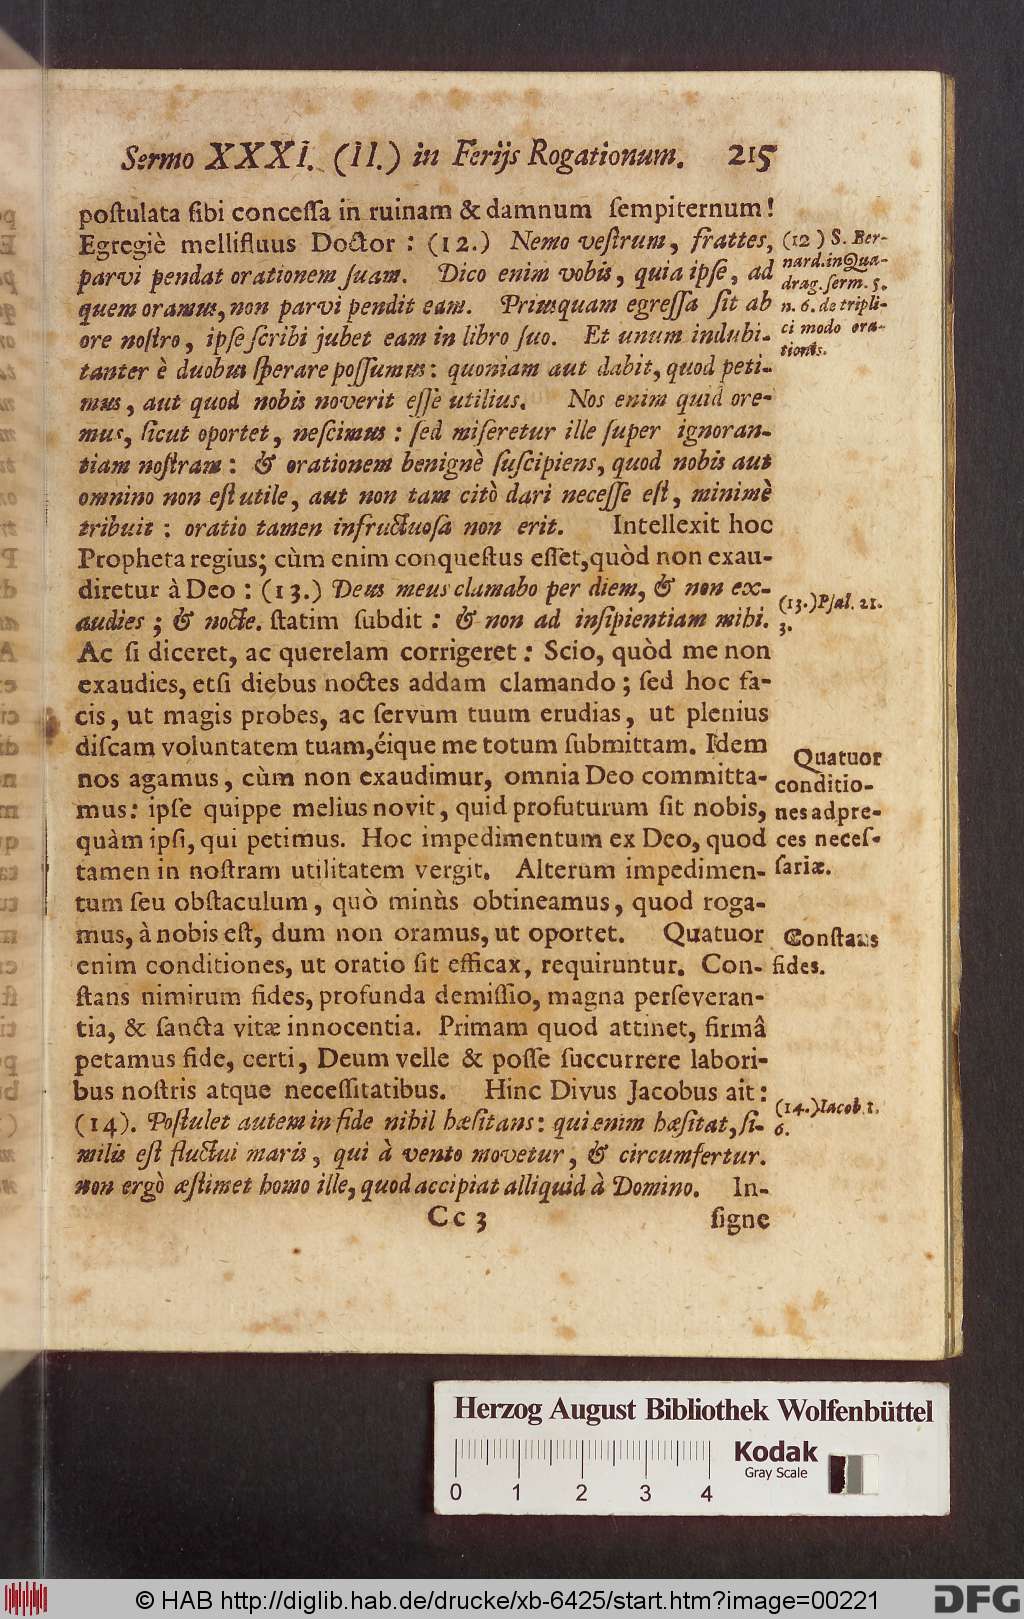 Sermo XXXI. (II.) in Ferijs Rogationum. 215
poſtulata ſibi conceſſa in ruinam & damnum ſempiternum!
Egregiè mellifluus Doctor : (12.) Nemo veſtrum, frattes,
parvi pendat orationem ſuam. Dico enim vobis, quia ipſe, ad
quem oramus, non parvi pendit eam. Priusquam egreſſa ſit ab
ore noſtro, ipſe ſcribi jubet eam in libro ſuo. Et unum indubi-
tanter è duobus ſperare poſſumus: quoniam aut dabit, quod peti-
mus, aut quod nobis noverit eſſe utilius. Nos enim quid ore-
mus, ſicut oportet, neſcimus : ſed miſeretur ille ſuper ignoran-
tiam noſtram : & orationem benignè ſuſcipiens, quod nobis aut
omnino non eſt utile, aut non tam citò dari neceſſe eſt, minimè
tribuit : oratio tamen infructuoſa non erit. Intellexit hoc
Propheta regius; cùm enim conqueſtus eſſet, quòd non exau-
diretur à Deo : (13.) Deus meus clamabo per diem, & non ex-
audies ; & nocte. ſtatim ſubdit : & non ad inſipientiam mihi.
Ac ſi diceret, ac querelam corrigeret : Scio, quòd me non
exaudies, etſi diebus noctes addam clamando ; ſed hoc fa-
cis, ut magis probes, ac ſervum tuum erudias, ut plenius
diſcam voluntatem tuam, éique me totum ſubmittam. Idem
nos agamus, cùm non exaudimur, omnia Deo committa-
mus: ipſe quippe melius novit, quid profuturum ſit nobis,
quàm ipſi, qui petimus. Hoc impedimentum ex Deo, quod
tamen in noſtram utilitatem vergit. Alterum impedimen-
tum ſeu obſtaculum, quò minùs obtineamus, quod roga-
mus, à nobis eſt, dum non oramus, ut oportet. Quatuor
enim conditiones, ut oratio ſit efficax, requiruntur. Con-
ſtans nimirum fides, profunda demiſſio, magna perſeveran-
tia, & ſancta vitæ innocentia. Primam quod attinet, firmâ
petamus fide, certi, Deum velle & poſſe ſuccurrere labori-
bus noſtris atque neceſſitatibus. Hinc Divus Jacobus ait :
(14). Poſtulet autem in fide nihil hæſitans : qui enim hæſitat, ſi-
milis eſt fluctui maris, qui à vento movetur, & circumfertur.
non ergò æſtimet homo ille, quod accipiat alliquid à Domino. In-
Cc 3 ſigne
(12) S. Ber-
nard. in Qua-
drag. ſerm. 5.
n. 6. de tripli-
ci modo ora-
tionis.
(13.) Pſal. 21.
3.
Quatuor
conditio-
nes ad pre-
ces neceſ-
ſariæ.
Conſtans
fides.
(14.) Iacob. 1.
6.
Herzog August Bibliothek Wolfenbüttel
Kodak
Gray Scale
0 1 2 3 4
© HAB http://diglib.hab.de/drucke/xb-6425/start.htm?image=00221
DFG